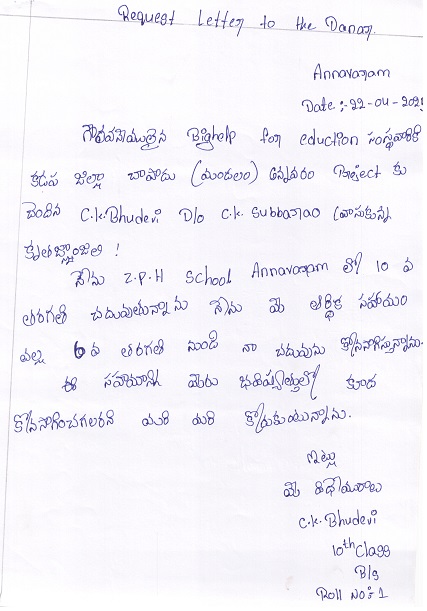 Request Letter to the Danor.
Annavaram
Date :- 22-04-202
గౌరవనీయులైన Bighelp for eduction సంస్థవారికి
కడప జిల్లా చాపాడు (మండలం) అన్నవరం Project కు
చెందిన C.K.Bhudevi D/o C.K. Subbarao వ్రాసుకున్న
కృతజ్ఞాంజలి !
నేను Z.P.H School Annavaram లో 10 వ
తరగతి చదువుతున్నాను నేను మీ ఆర్థిక సహాయం
వల్ల 6 వ తరగతి నుండి నా చదువును కోనసాగిస్తున్నాను.
ఈ సహాయాన్ని మీరు భవిష్యత్తులో కూడ
కోనసాగించగలరని మరి మరి కోరుకుంటున్నాను.
ఇట్లు
మీ విధేయురాలు
C.K. Bhudevi
10th Class
B/s
Roll No:- 1